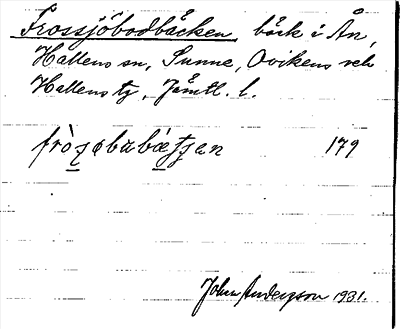 Frossjöbodbäcken bäck i Ån,
Hallens sn, Sunne, Ovikens och
Hallens tg, Jämtl. l.
fròʒøbubæ̀tʃen 179
John Anderzson 1931.